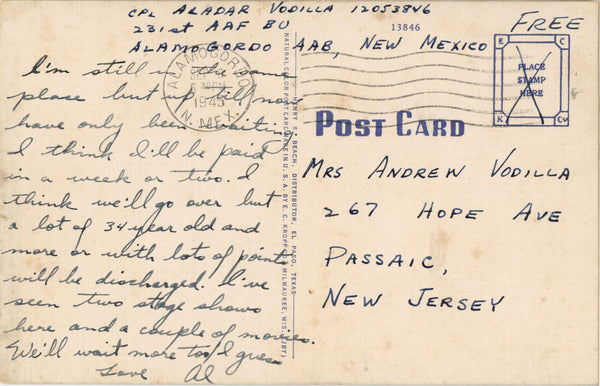 CPL ALADAR VODILLA 12053846
231st AAF BU
ALAMOGORDO AAB, NEW MEXICO
13846
FREE
PLACE
STAMP
HERE
ALAMOGORDO
1945
N. MEX.
POST CARD
I'm still in the same
place but up till now
have only been waiting.
I think I'll be paid
in a week or two. I
think we'll go over but
a lot of 34 year old and
more or with lots of points
will be discharged. I've
seen two stage shows
here and a couple of movies.
We'll wait more too I guess
Love Al
NATURAL COLOR POST CARD MADE IN U.S.A. BY E. C. KROPP CO., MILWAUKEE, WIS.
HENRY S. BEACH, DISTRIBUTOR, EL PASO, TEXAS
MRS ANDREW VODILLA
267 HOPE AVE
PASSAIC,
NEW JERSEY